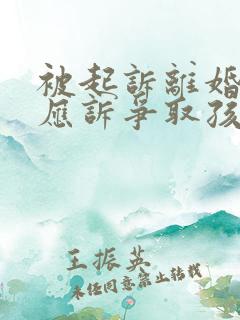 被起訴離婚
應訴爭取孩
王振英
未經同意禁止轉載